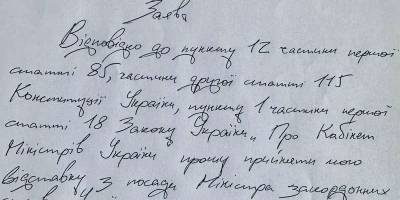 Заява
Відповідно до пункту 12 частини першої
статті 85, частини другої статті 115
Конституції України, пункту 1 частини першої
статті 18 Закону України „Про Кабінет
Міністрів України прошу прийняти мою
відставку з посади Міністра закордонних